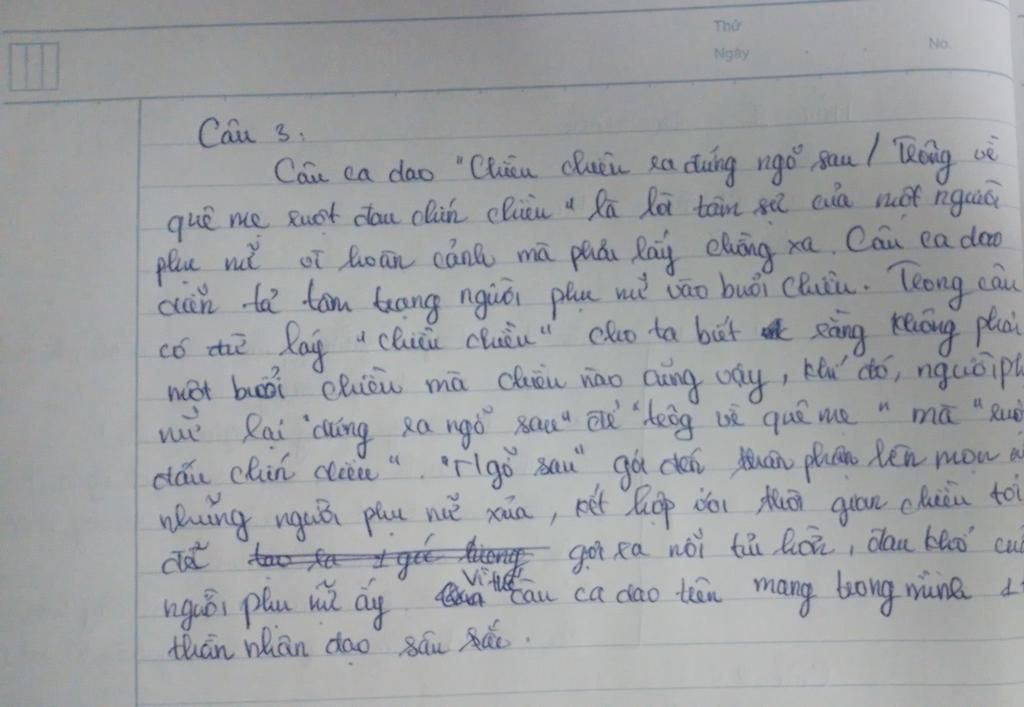 Thứ
Ngày
No.
Câu 3:
Câu ca dao "Chiều chiều ra đứng ngõ sau / Trông về
quê mẹ ruột đau chín chiều" là lời tâm sự của một người
phụ nữ vì hoàn cảnh mà phải lấy chồng xa. Câu ca dao
diễn tả tâm trạng người phụ nữ vào buổi chiều. Trong câu
có từ láy "chiều chiều" cho ta biết rằng không phải
một buổi chiều mà chiều nào cũng vậy, khi đó, người ph
nữ lại "đứng ra ngõ sau" để "trông về quê mẹ" mà "ruột
đau chín chiều". "Ngõ sau" gợi đến thân phận lên mọn
những người phụ nữ xưa, kết hợp với thời gian chiều tối
để gợi ra nỗi tủi hờn, đau khổ củ
người phụ nữ ấy. Vì thế câu ca dao trên mang trong mình
thần nhân đạo sâu sắc.